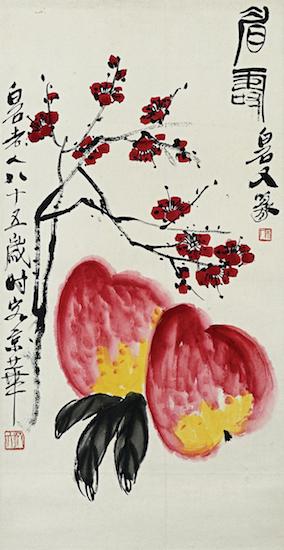 眉壽
白石又篆
白石老人八十五歲时客京華